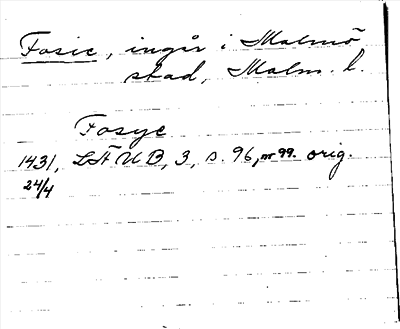 Fosie, ingår i Malmö
stad, Malm. l.
Fosye
1431, LÄUB, 3, s. 96, nr 99. orig.
24/4